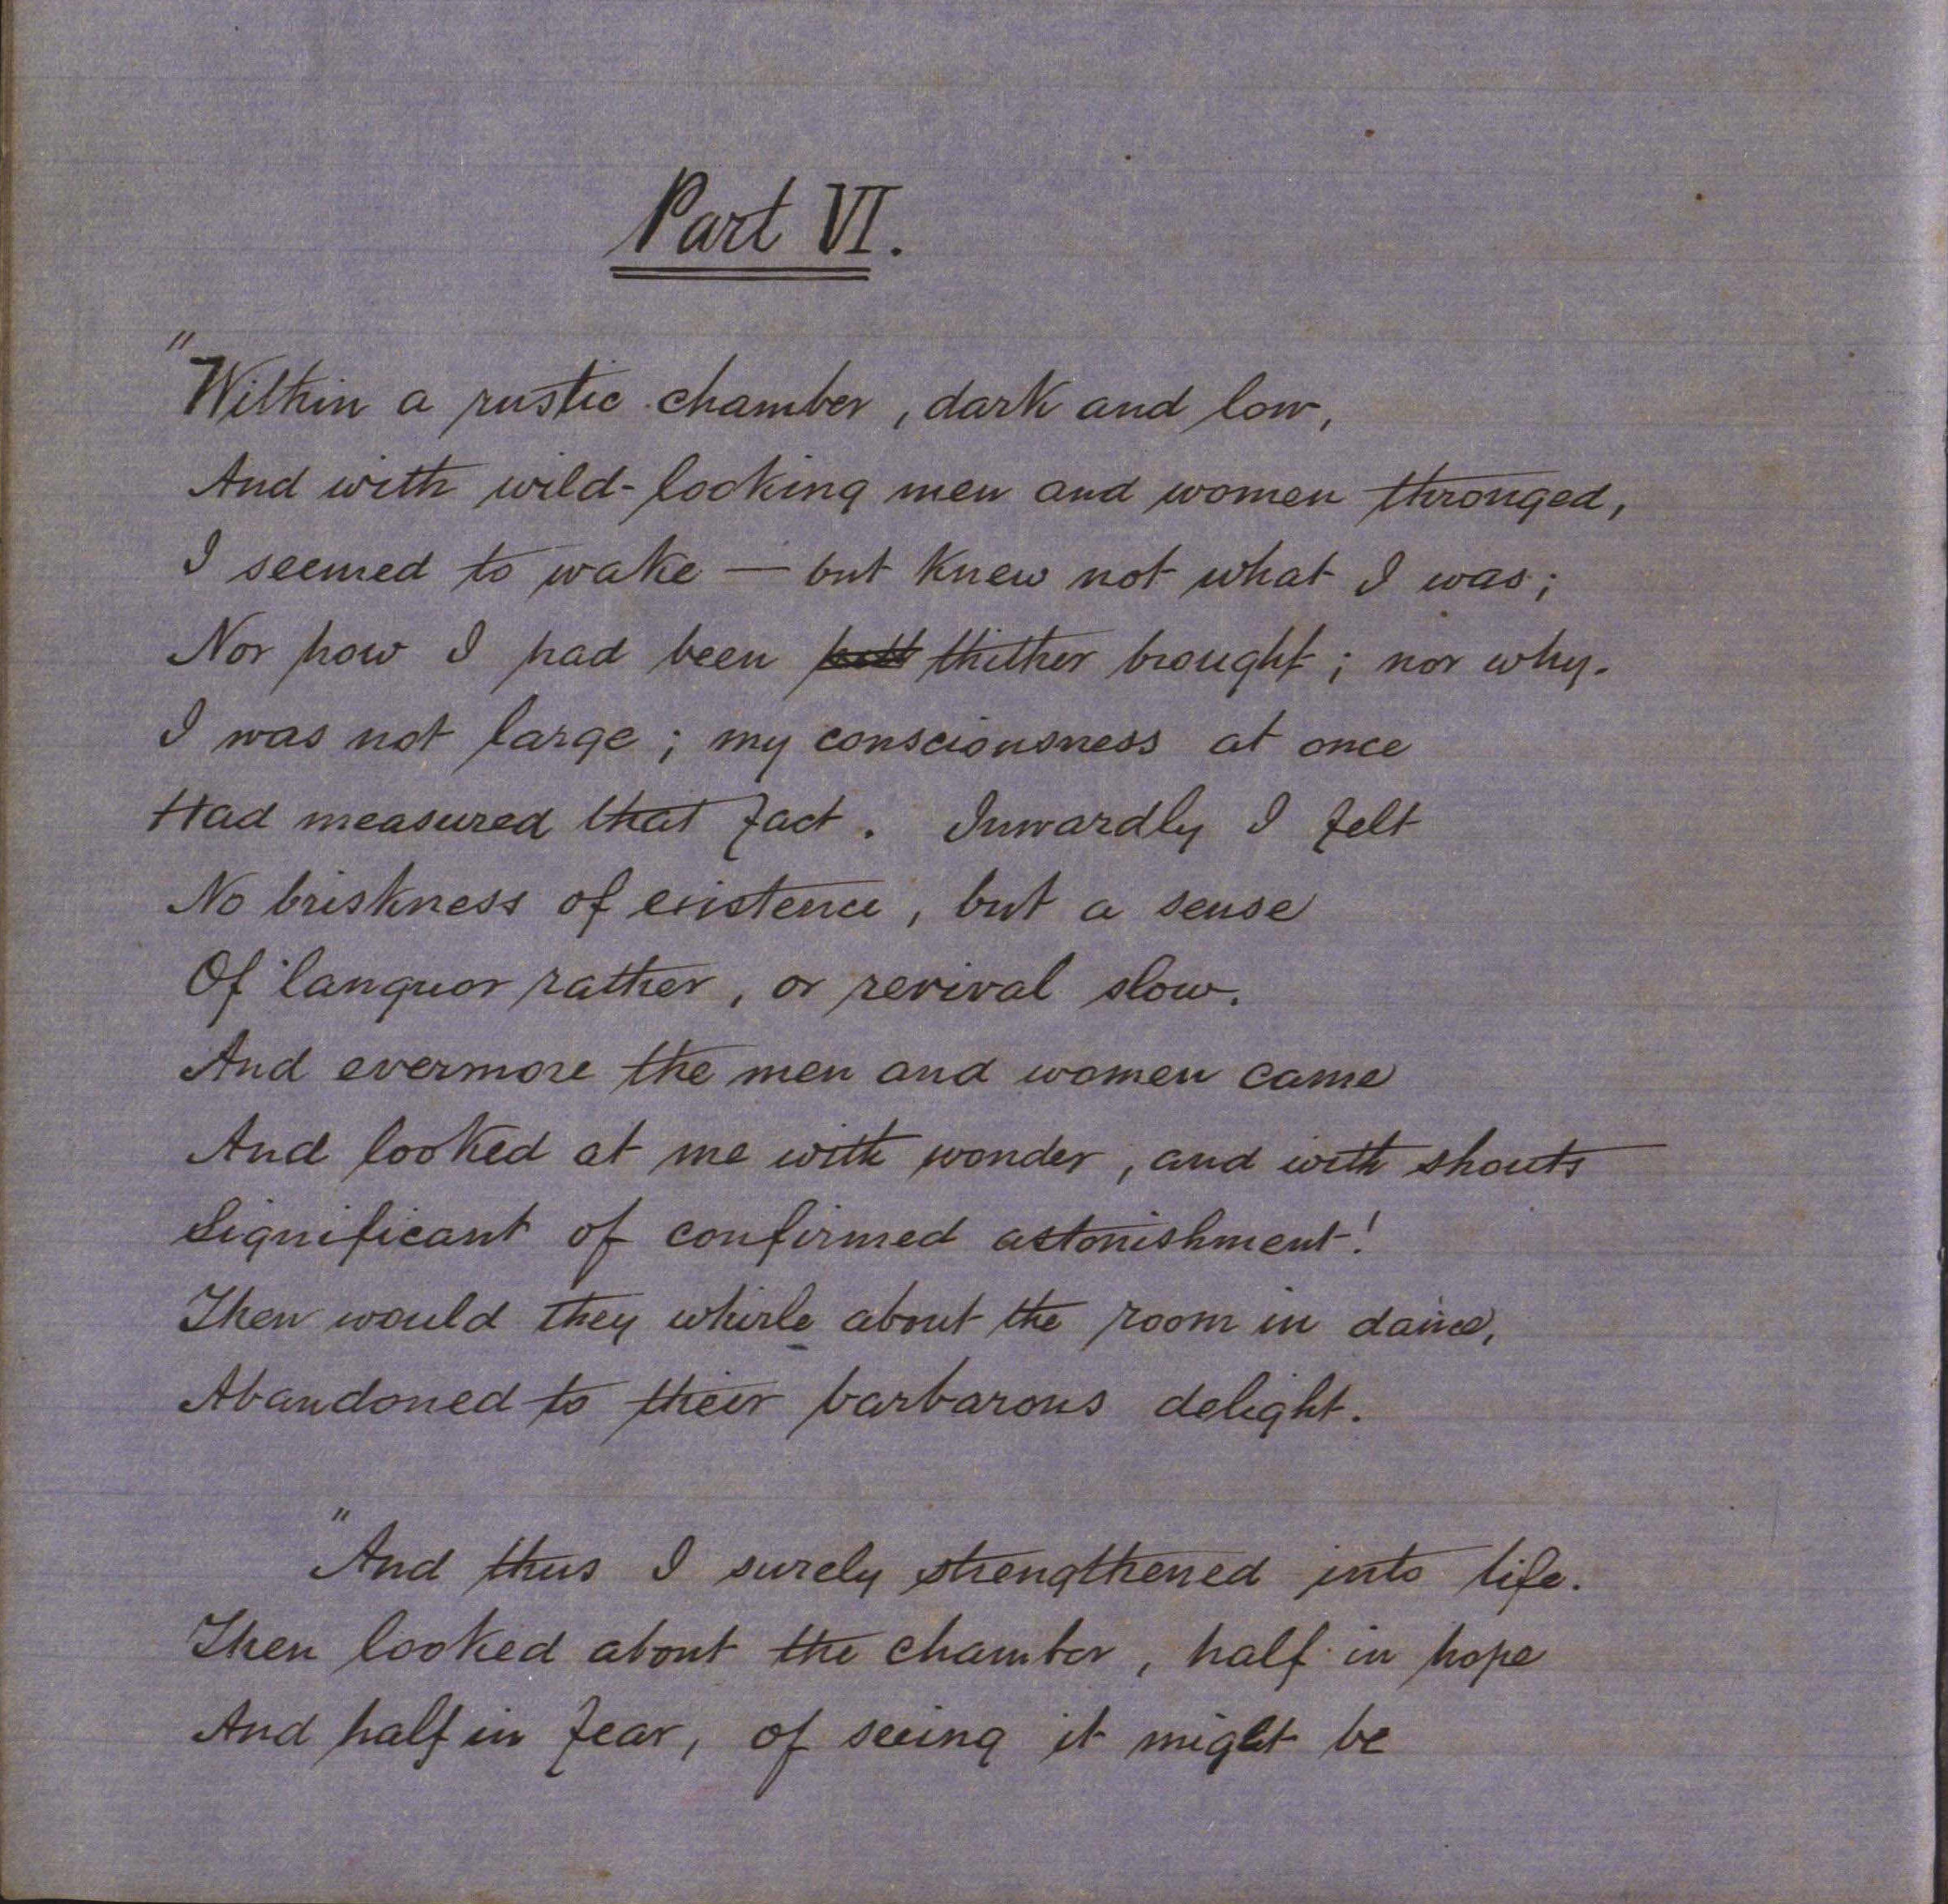 Part VI.
"Within a rustic chamber, dark and low,
And with wild-looking men and women thronged,
I seemed to wake — but knew not what I was;
Nor how I had been thither brought; nor why.
I was not large; my consciousness at once
Had measured that fact. Inwardly I felt
No briskness of existence, but a sense
Of languor rather, or revival slow.
And evermore the men and women came
And looked at me with wonder, and with shouts
Significant of confirmed astonishment!
Then would they whirle about the room in dance,
Abandoned to their barbarous delight.
"And thus I surely strengthened into life.
Then looked about the chamber, half in hope
And half in fear, of seeing it might be